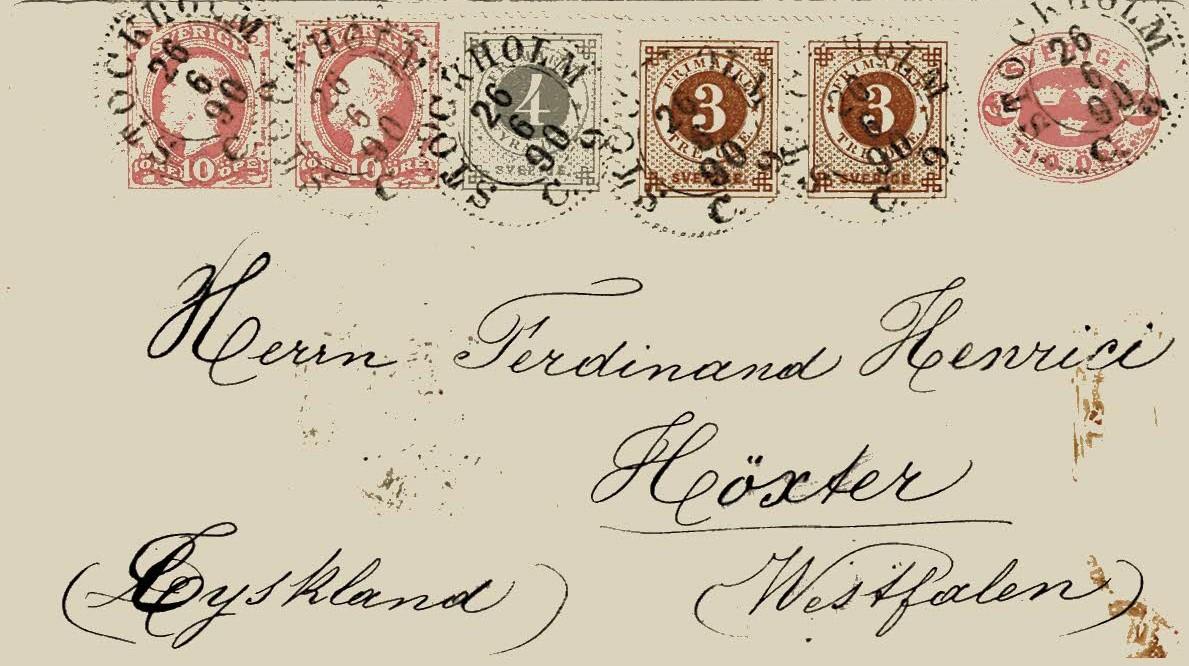 STOCKHOLM 26 6 90 C
SVERIGE 10 ÖRE
STOCKHOLM 26 6 90 C
SVERIGE 10 ÖRE
STOCKHOLM 26 6 90 C
4 SVERIGE
STOCKHOLM 26 6 90 C
FRIMÄRKE 3 TRE SVERIGE
STOCKHOLM 26 6 90 C
FRIMÄRKE 3 TRE SVERIGE
STOCKHOLM 26 6 90 C
SVERIGE TIO ÖRE
Herrn Ferdinand Henrici
Höxter
(Tyskland) (Westfalen)